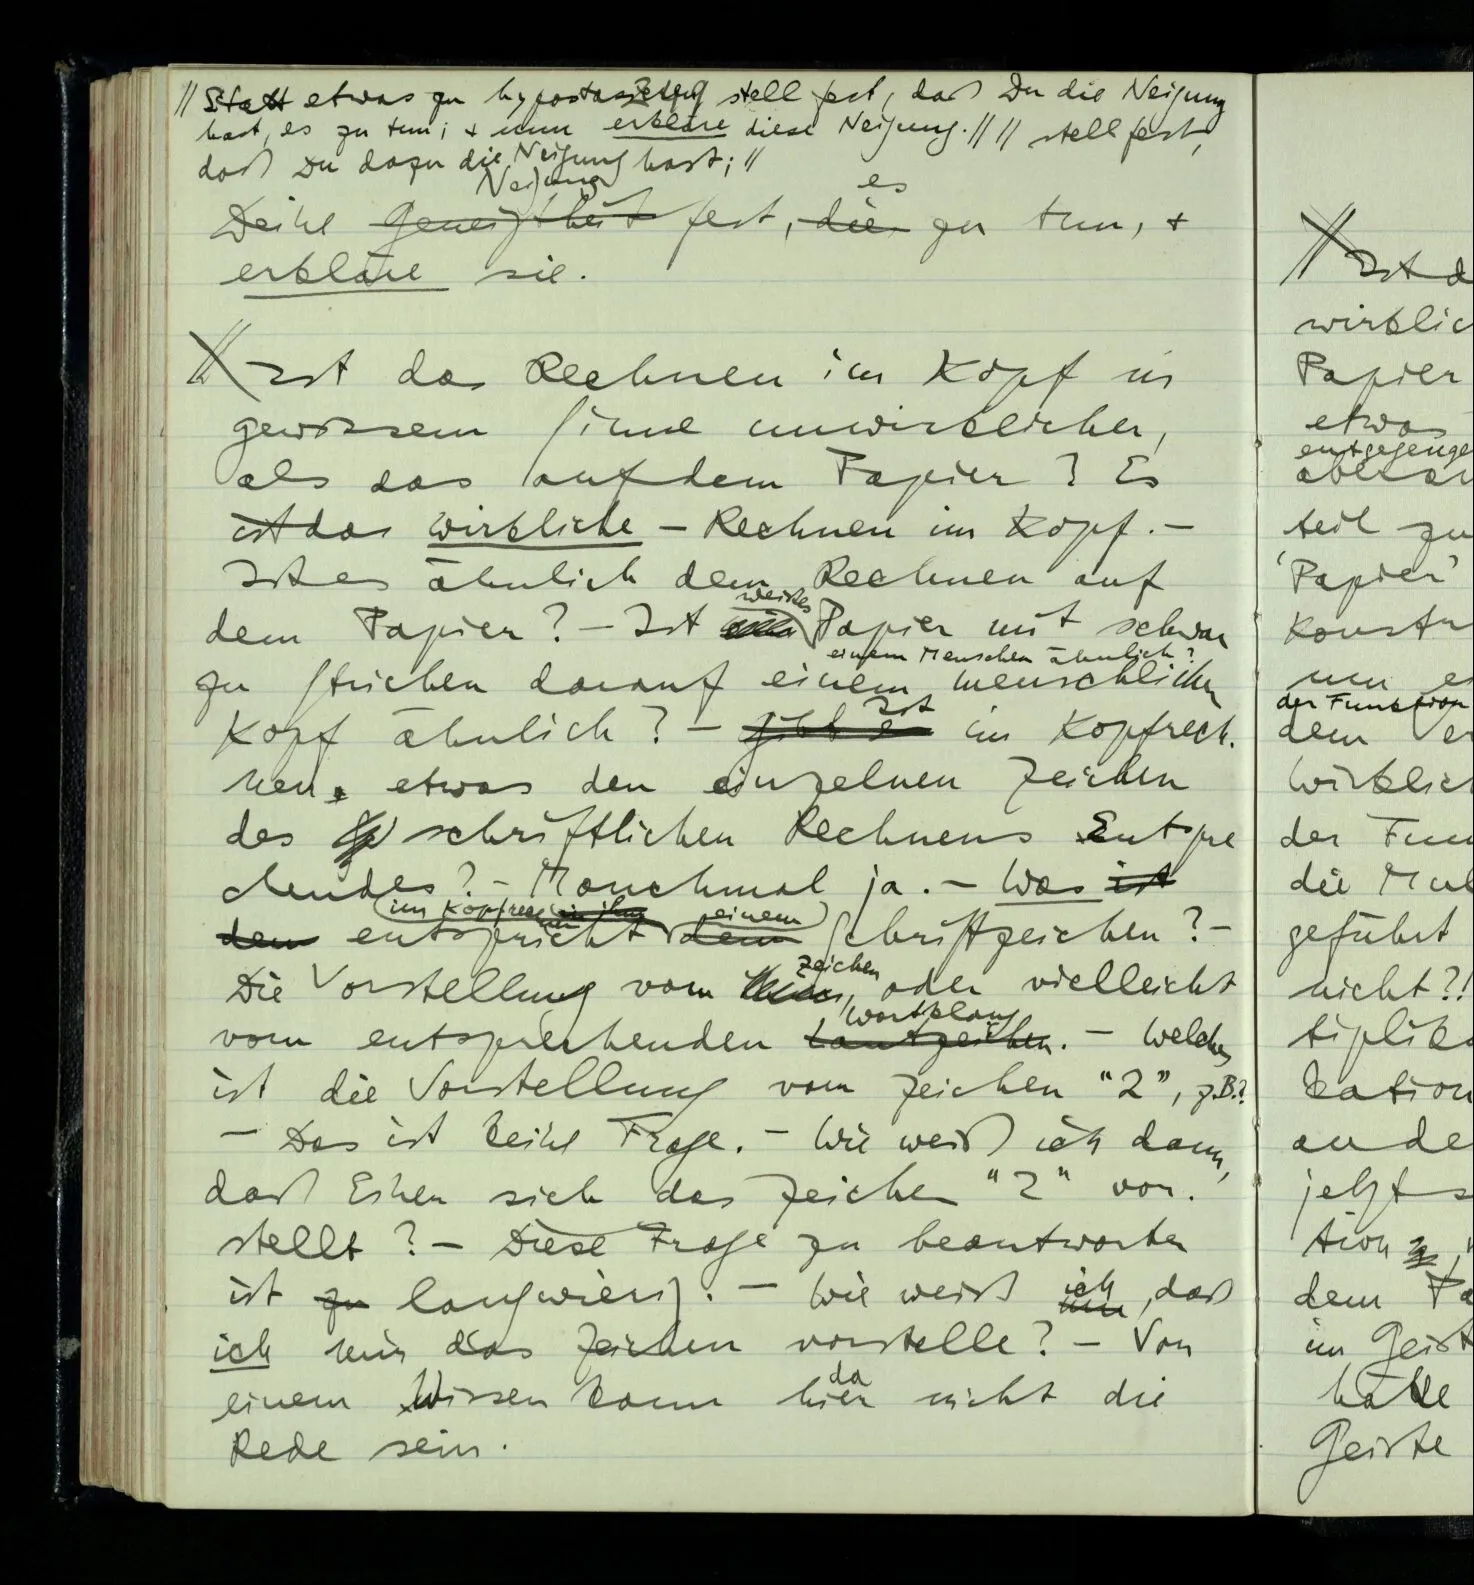 // Statt etwas zu hypostasieren stell fest, daß Du die Neigung
hast, es zu tun; + nun erkläre diese Neigung. // // stell fest,
daß Du dazu die Neigung hast; //
Neigung es
Deine Geneigtheit fest, die zu tun, +
erkläre sie.
// Ist das Rechnen im Kopf in
gewissem Sinne unwirklicher,
als das auf dem Papier? Es
ist das wirkliche – Rechnen im Kopf. –
Ist es ähnlich dem Rechnen auf
weißes
dem Papier? – Ist Papier mit schwar
einem Menschen ähnlich?
zu Strichen darauf einem menschlichen
Ist
Kopf ähnlich? – gibt es im Kopfrech.
nen etwas den einzelnen Zeichen
des schriftlichen Rechnens Entspre
chendes? – Manchmal ja. – Was ist
im Kopfrechnen in ihm einem
dem entspricht dem Schriftzeichen? –
Zeichen
Die Vorstellung vom , oder vielleicht
Wortklang
vom entsprechenden Lautzeichen. – Welches
ist die Vorstellung vom Zeichen "2", z.B.?
– Das ist keine Frage. – Wie weiß ich dann,
daß Einer sich das Zeichen "2" vor.
stellt? – Diese Frage zu beantworten
ich
ist zu langwierig. – Wie weiß man, daß
ich mir das Zeichen vorstelle? – Von
da
einem Wissen kann hier nicht die
Rede sein.
// Ist d
wirklic
Papier
etwas
entgegenge
teil zu
'Papier'
Konstr
nun es
der Funktion
dem
Wirklic
der Fun
die Mul
geführt
nicht?!
tiplika
kation
ande
jetzt s
tion
dem Pa
im Geist
hätte
Geiste